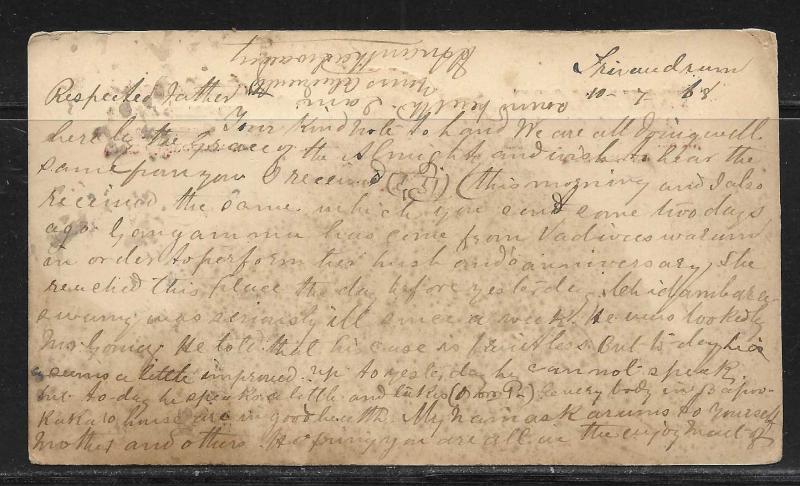 Trivandrum
10-7-88
Respected Father
Your kind note to hand We are all doing well
here by the grace of the Almighty and wish to hear the
same from you I received this morning and I also
received the same which you send some two days
ago. has come from
in order to perform her husband's anniversary, she
reached this place the day before yesterday. Chidambara
swamy was seriously ill since a week. He was looked by
He told that his case is fruitless. But to-day he is
a little improved. up to yesterday he cannot speak.
but to-day he speaks a little and takes every body in
house are in good health. My Namaskarams to yourself
mother and others. Hoping you are all in the enjoyment of
sound health. I am
yours obediently